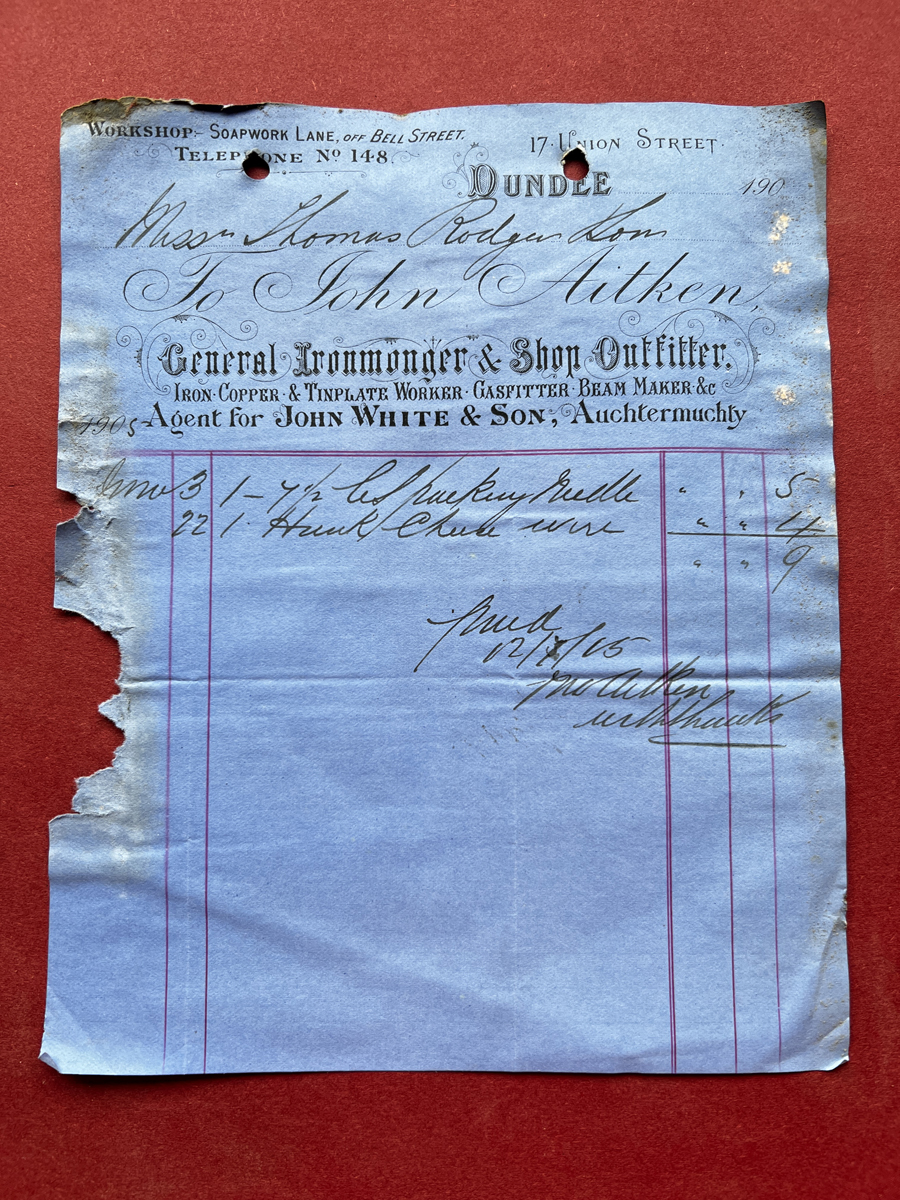 WORKSHOP:- SOAPWORK LANE, OFF BELL STREET.
TELEPHONE Nº 148.
17·UNION STREET·
DUNDEE 190
Messrs Thomas Rodger & Son
To John Aitken,
General Ironmonger & Shop Outfitter.
IRON·COPPER·& TINPLATE WORKER·GASFITTER·BEAM MAKER &c
1905 Agent for JOHN WHITE & SON, Auchtermuchty
3 1 - 7½ Packing Needle " " 5
" 22 1 Hunk Cheese wire " " 4
" " 9
12/ /05
Jno Aitken
with thanks